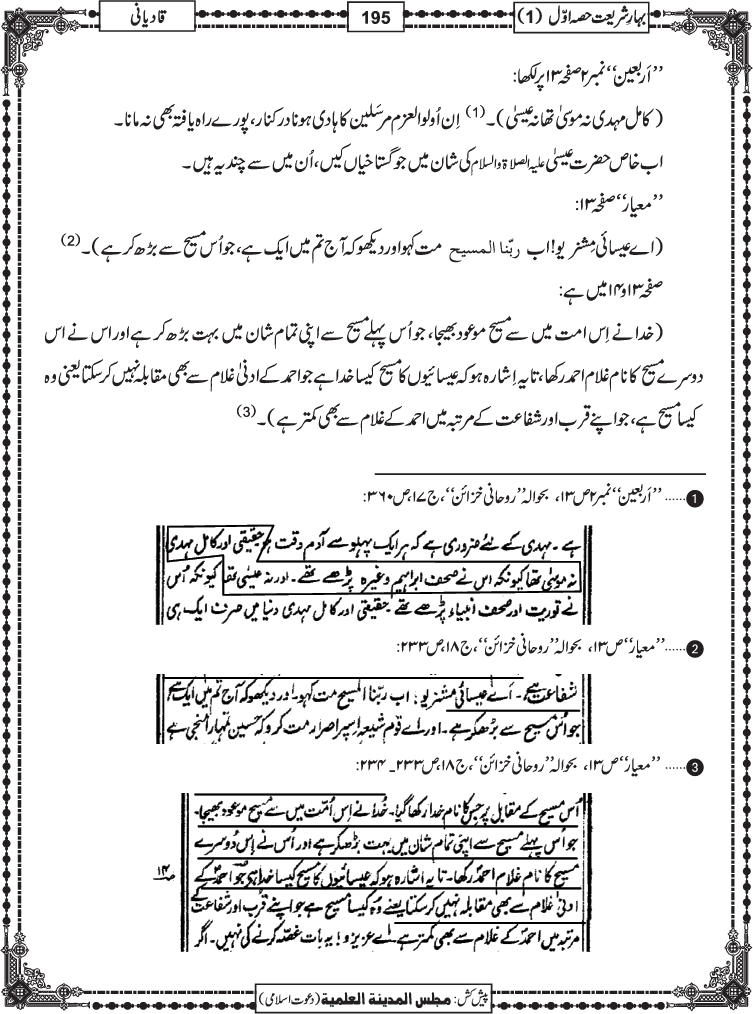 بہارِشریعت حصہ اوّل (1)
195
قادیانی
’’اَربعین‘‘ نمبر ۲ صفحہ ۱۳ پر لکھا:
(کامل مہدی نہ موسیٰ تھا نہ عیسیٰ)۔(1) اِن اُولو العزم مرسَلین کا ہادی ہونا در کنار، پورے راہ یافتہ بھی نہ مانا۔
اب خاص حضرت عیسیٰ علیہ الصلاۃ والسلام کی شان میں جو گستاخیاں کیں، اُن میں سے چند یہ ہیں۔
’’معیار‘‘ صفحہ ۱۳:
(اے عیسائی مِشنریو! اب ربّنا المسیح مت کہو اور دیکھو کہ آج تم میں ایک ہے، جو اُس مسیح سے بڑھ کر ہے)۔(2)
صفحہ ۱۳ و ۱۴ میں ہے:
(خدا نے اِس امت میں سے مسیح موعود بھیجا، جو اُس پہلے مسیح سے اپنی تمام شان میں بہت بڑھ کر ہے اور اس نے اس
دوسرے مسیح کا نام غلام احمد رکھا، تا یہ اِشارہ ہو کہ عیسائیوں کا مسیح کیسا خدا ہے جو احمد کے ادنیٰ غلام سے بھی مقابلہ نہیں کرسکتا یعنی وہ
کیسا مسیح ہے، جو اپنے قرب اور شفاعت کے مرتبہ میں احمد کے غلام سے بھی کمتر ہے)۔(3)
1 ...... ’’اَربعین‘‘ نمبر ۲ ص۱۳، بحوالہ ’’روحانی خزائن‘‘، ج۱۷، ص۳۶۰:
ہے۔ مہدی کے لئے ضروری ہے کہ ہر ایک پہلو سے آدم وقت ہو حقیقی اور کامل مہدی
نہ موسیٰ تھا کیونکہ اس نے صحف ابراہیم وغیرہ پڑھے تھے۔ اور نہ عیسیٰ تھا کیونکہ اُس
نے توریت اور صحف انبیاء پڑھے تھے حقیقی اور کامل مہدی دنیا میں صرف ایک ہی
2 ...... ’’معیار‘‘ ص۱۳، بحوالہ ’’روحانی خزائن‘‘، ج۱۸، ص۲۳۳:
شفاعت ہے۔ اَے عیسائی مشنریو! اب ربّنا المسیح مت کہو۔ اور دیکھو کہ آج تم میں ایک ہے
جو اُس مسیح سے بڑھکر ہے۔ اور اے قوم شیعہ اِسپر اصرار مت کرو کہ حسین تمہارا منجی ہے
3 ...... ’’معیار‘‘ ص۱۳، بحوالہ ’’روحانی خزائن‘‘، ج۱۸، ص۲۳۳۔۲۳۴:
اُس مسیح کے مقابل پر جس کا نام خدا رکھا گیا۔ خدا نے اِس اُمّت میں سے مسیح موعود بھیجا۔
جو اُس پہلے مسیح سے اپنی تمام شان میں بہت بڑھکر ہے اور اُس نے اِس دُوسرے
مسیح کا نام غلام احمد رکھا۔ تا یہ اشارہ ہو کہ عیسائیوں کا مسیح کیسا خدا ہے جو احمد کے
ص۱۴
ادنیٰ غلام سے بھی مقابلہ نہیں کرسکتا یعنے وُہ کیسا مسیح ہے جو اپنے قُرب اور شفاعت کے
مرتبہ میں احمد کے غلام سے بھی کمتر ہے۔ اَے عزیزو! یہ بات غصّہ کرنے کی نہیں۔ اگر
پیش کش: مجلس المدینۃ العلمیۃ (دعوتِ اسلامی)